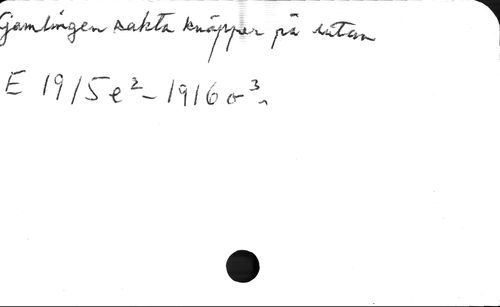 Gamlingen sakta knäpper på rutan
E 1915 e² – 1916 σ³.